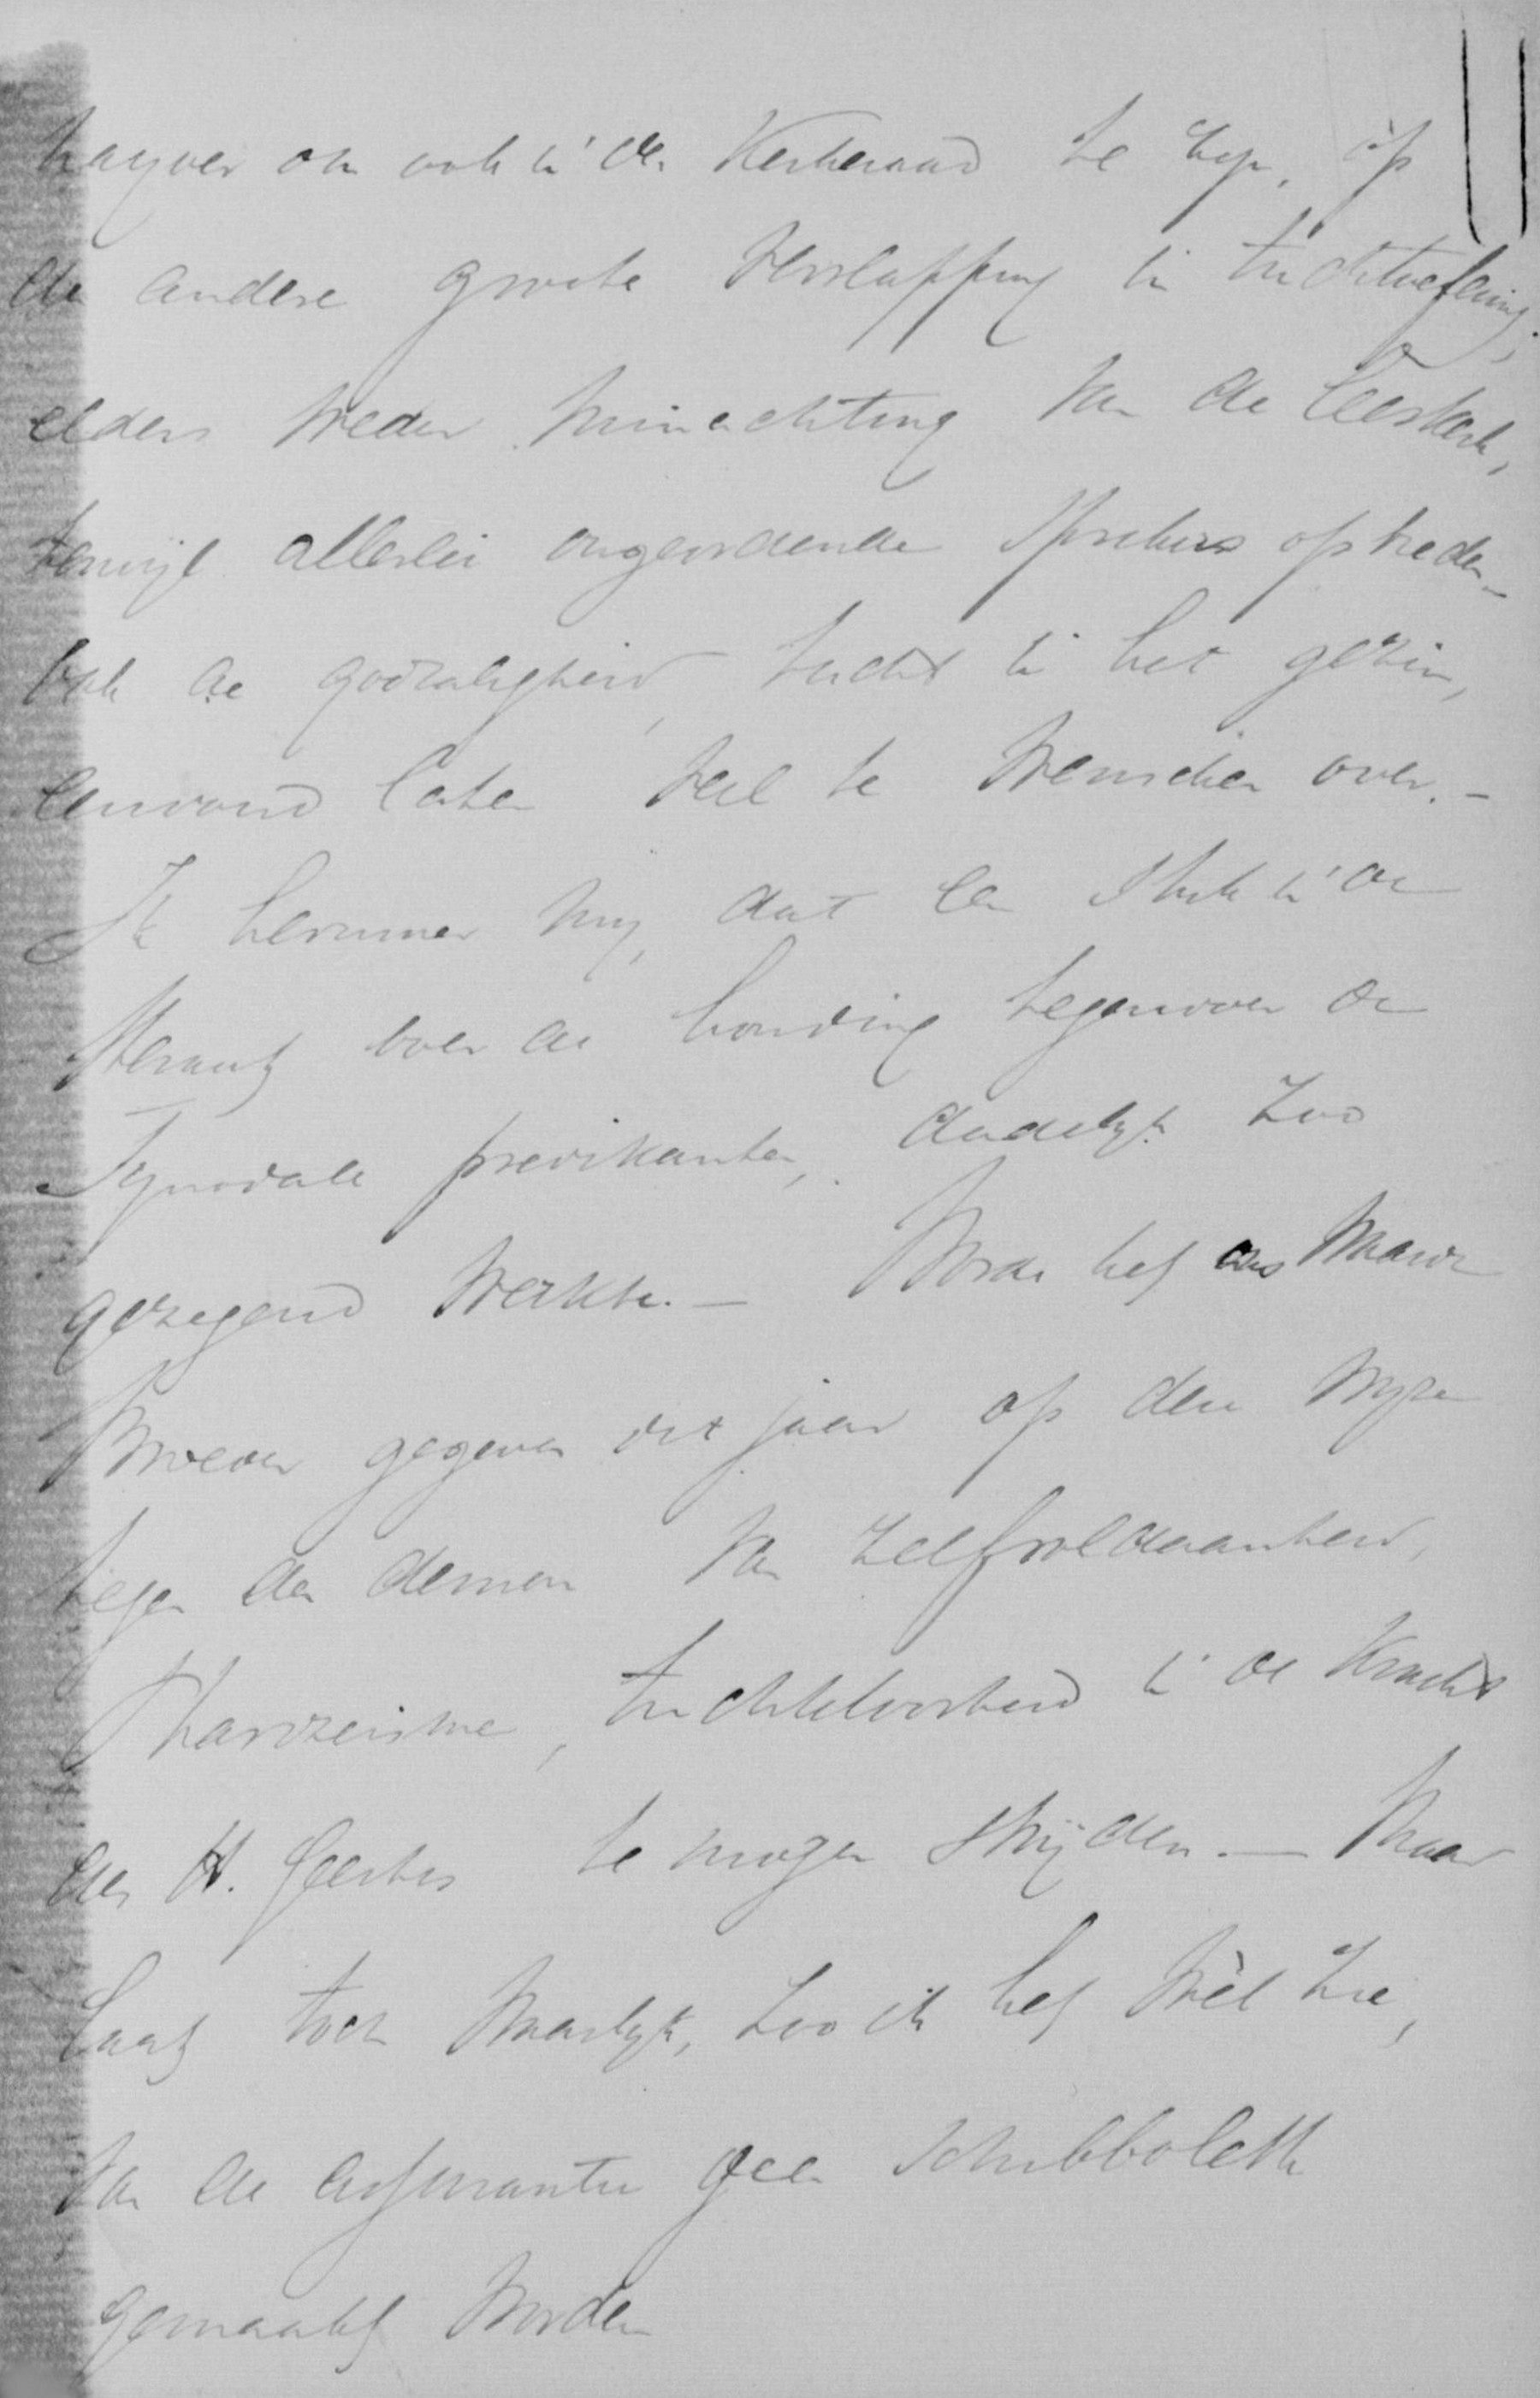 om ook in den Kerkeraad te zijn, op
de andere groote verslapping in tuchtoefening,
elders weder minachting van de leeskerk,
terwijl allerlei ongeordende sprekers optreden -
ook de godzaligheid, tucht in het gezin,
eenvoud laten veel te wenschen over. -
Ik herinner mij, dat een stuk in de
Heraut over de houding tegenover de
Synodale predikanten, dadelijk zoo
gezegend werkte. - Worde het ons Waarde
Broeder gegeven dit jaar op deze wijze
tegen den demon van zelfvoldaanheid,
Pharizeisme, tuchteloosheid in de kracht
des H. Geestes te mogen strijden. - Maar
laat toch, zoo ik het wèl zie,
van de geen schibboleth
gemaakt worden